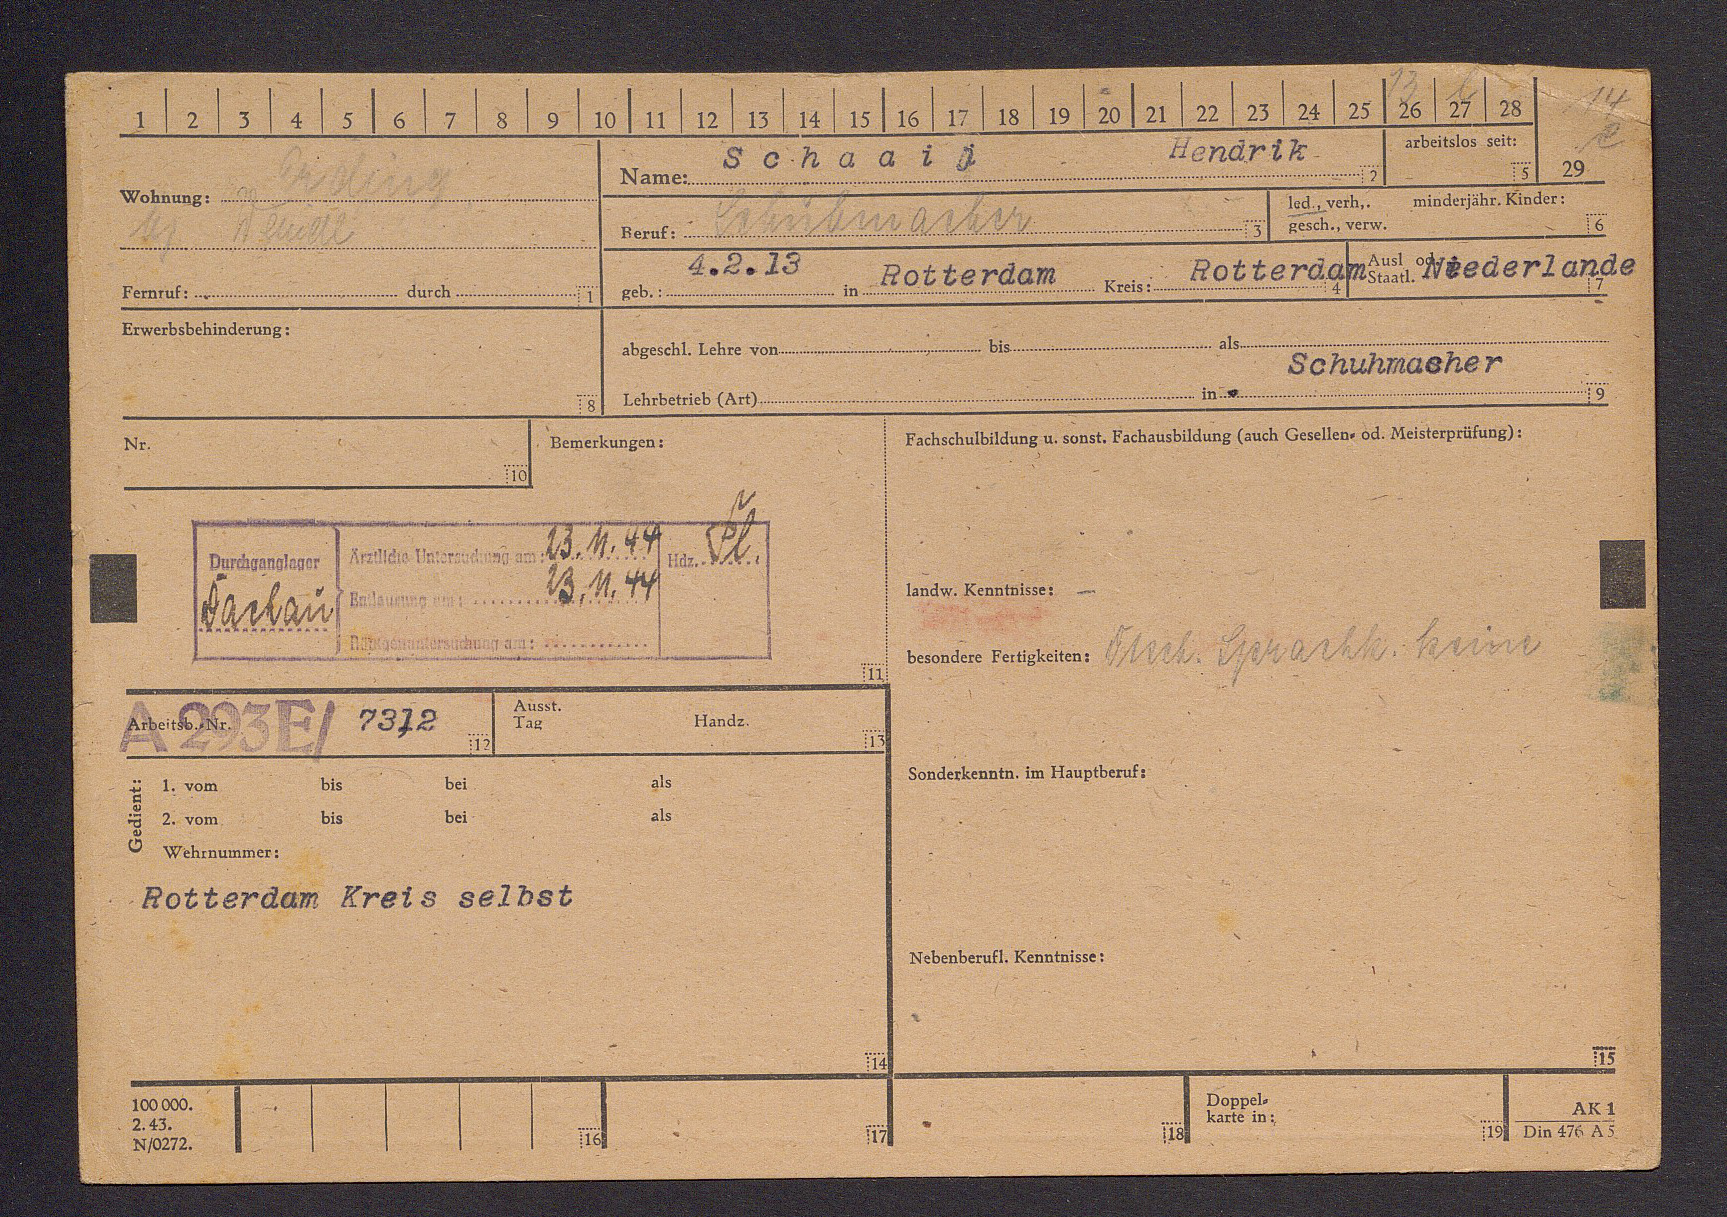 1 2 3 4 5 6 7 8 9 10 11 12 13 14 15 16 17 18 19 20 21 22 23 24 25 26 27 28
13 14
Wohnung: Erding
Name: Schaaij Hendrik 2
arbeitslos seit: 5
29
Beruf: Schuhmacher 3
led., verh,. minderjähr. Kinder:
gesch., verw. 6
Fernruf: durch 1
geb.: 4.2.13 in Rotterdam Kreis: Rotterdam 4
Ausl od.
Staatl. Niederlande 7
Erwerbsbehinderung: 8
abgeschl. Lehre von bis als
Schuhmacher
Lehrbetrieb (Art) in 9
Nr. 10
Bemerkungen:
Durchganglager
Dachau
Ärztliche Untersuchung am: 23.11.44
Entlausung am: 23.11.44
Röntgenuntersuchung am:
Hdz.
11
Fachschulbildung u. sonst. Fachausbildung (auch Gesellen- od. Meisterprüfung):
landw. Kenntnisse: –
besondere Fertigkeiten: Dtsch. Sprachk. keine
Arbeitsb.-Nr. A 293E/ 7312 12
Ausst.
Tag Handz. 13
Gedient:
1. vom bis bei als
2. vom bis bei als
Wehrnummer:
Rotterdam Kreis selbst
14
Sonderkenntn. im Hauptberuf:
Nebenberufl. Kenntnisse:
15
100 000.
2. 43.
N/0272.
16 17 18
Doppel-
karte in:
19
AK 1
Din 476 A 5